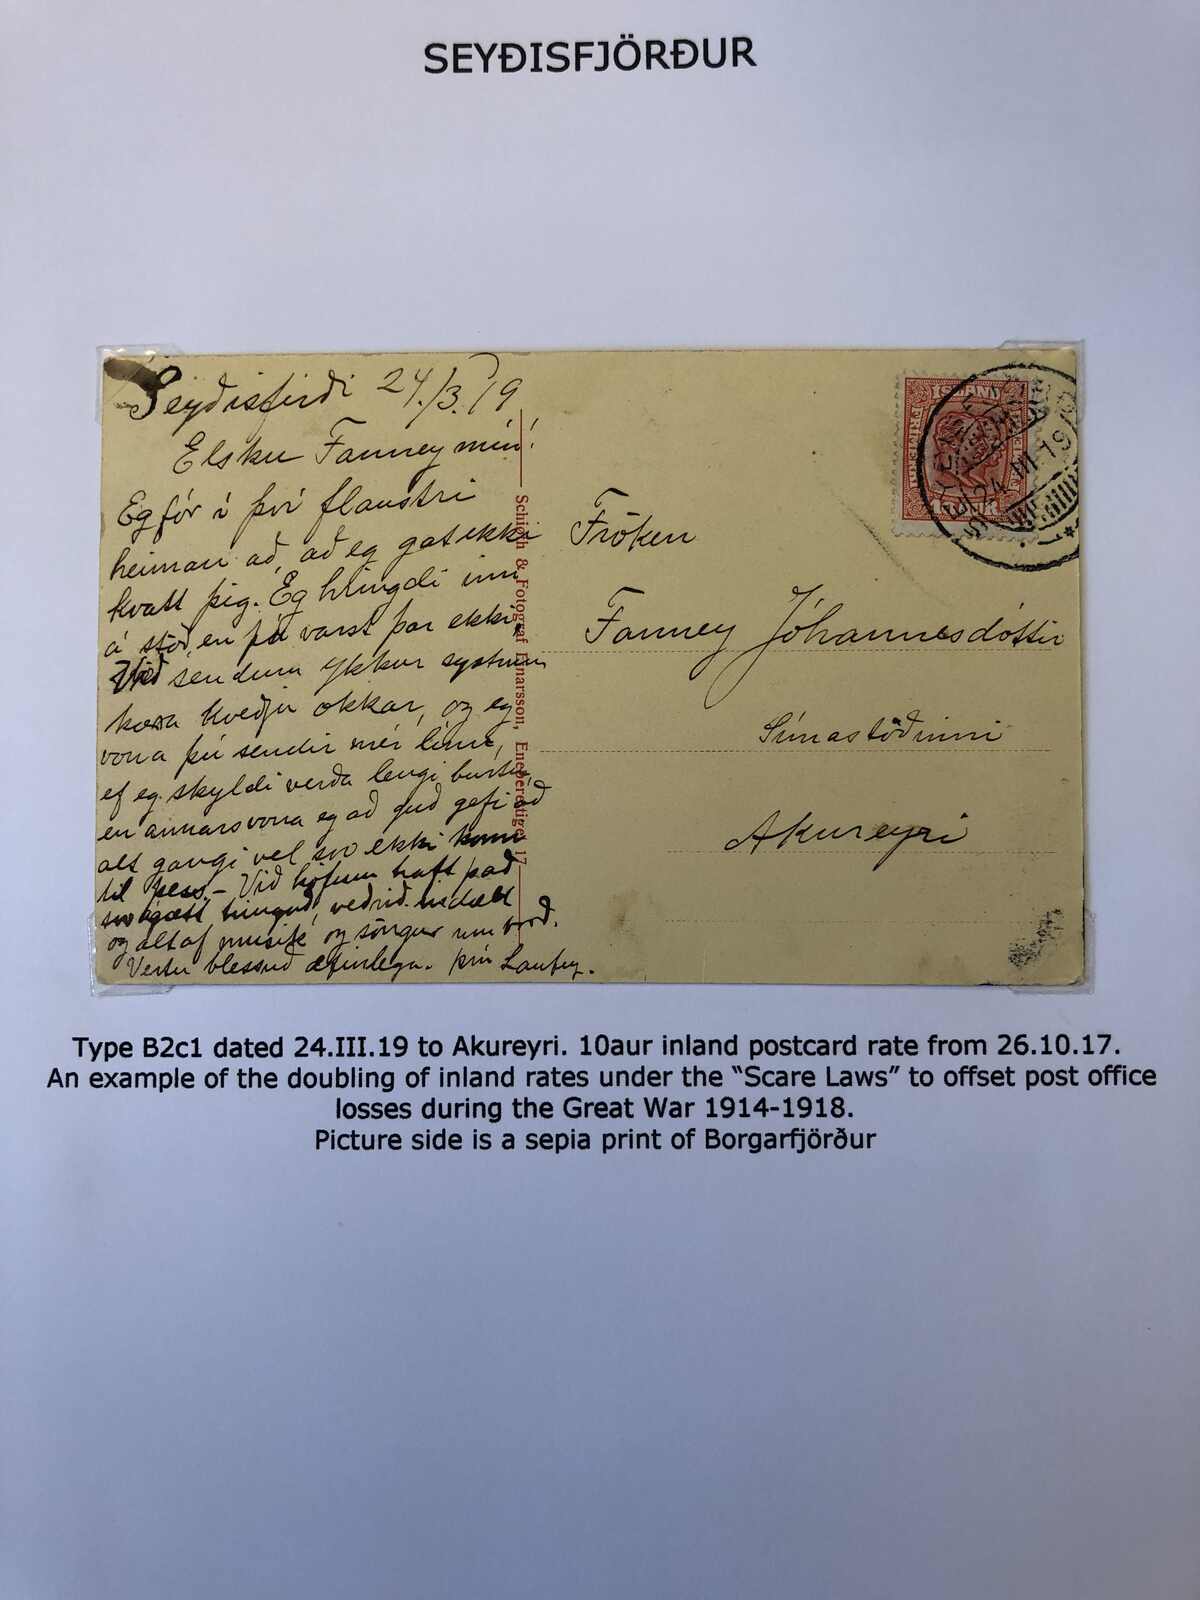 SEYÐISFJÖRÐUR
Seyðisfirði 24/3.19
Elsku Fanney mín!
Eg fór í því flaustri
heiman að, að eg gat ekki
kvatt þig. Eg hringdi inn
á stöð, en þú varst þar ekki.
Við sendum ykkur systrum
kæra kveðju okkar, og eg
vona þú sendir mér línu,
ef eg skyldi verða lengi burtu
en annars vona eg að guð gefi að
alt gangi vel svo ekki komi
til þess. - Við höfum haft það
svo ágætt hingað, veðrið indælt
og altaf musik og söngur um borð.
Vertu blessuð æfinlega. þín Laufey.
Schiöth & Fotograf Einarsson, Eneberettiget 17
Fröken
Fanney Jóhannesdóttir
Símastöðinni
Akureyri
ÍSLAND
24 III 19
Type B2c1 dated 24.III.19 to Akureyri. 10aur inland postcard rate from 26.10.17.
An example of the doubling of inland rates under the “Scare Laws” to offset post office
losses during the Great War 1914-1918.
Picture side is a sepia print of Borgarfjörður